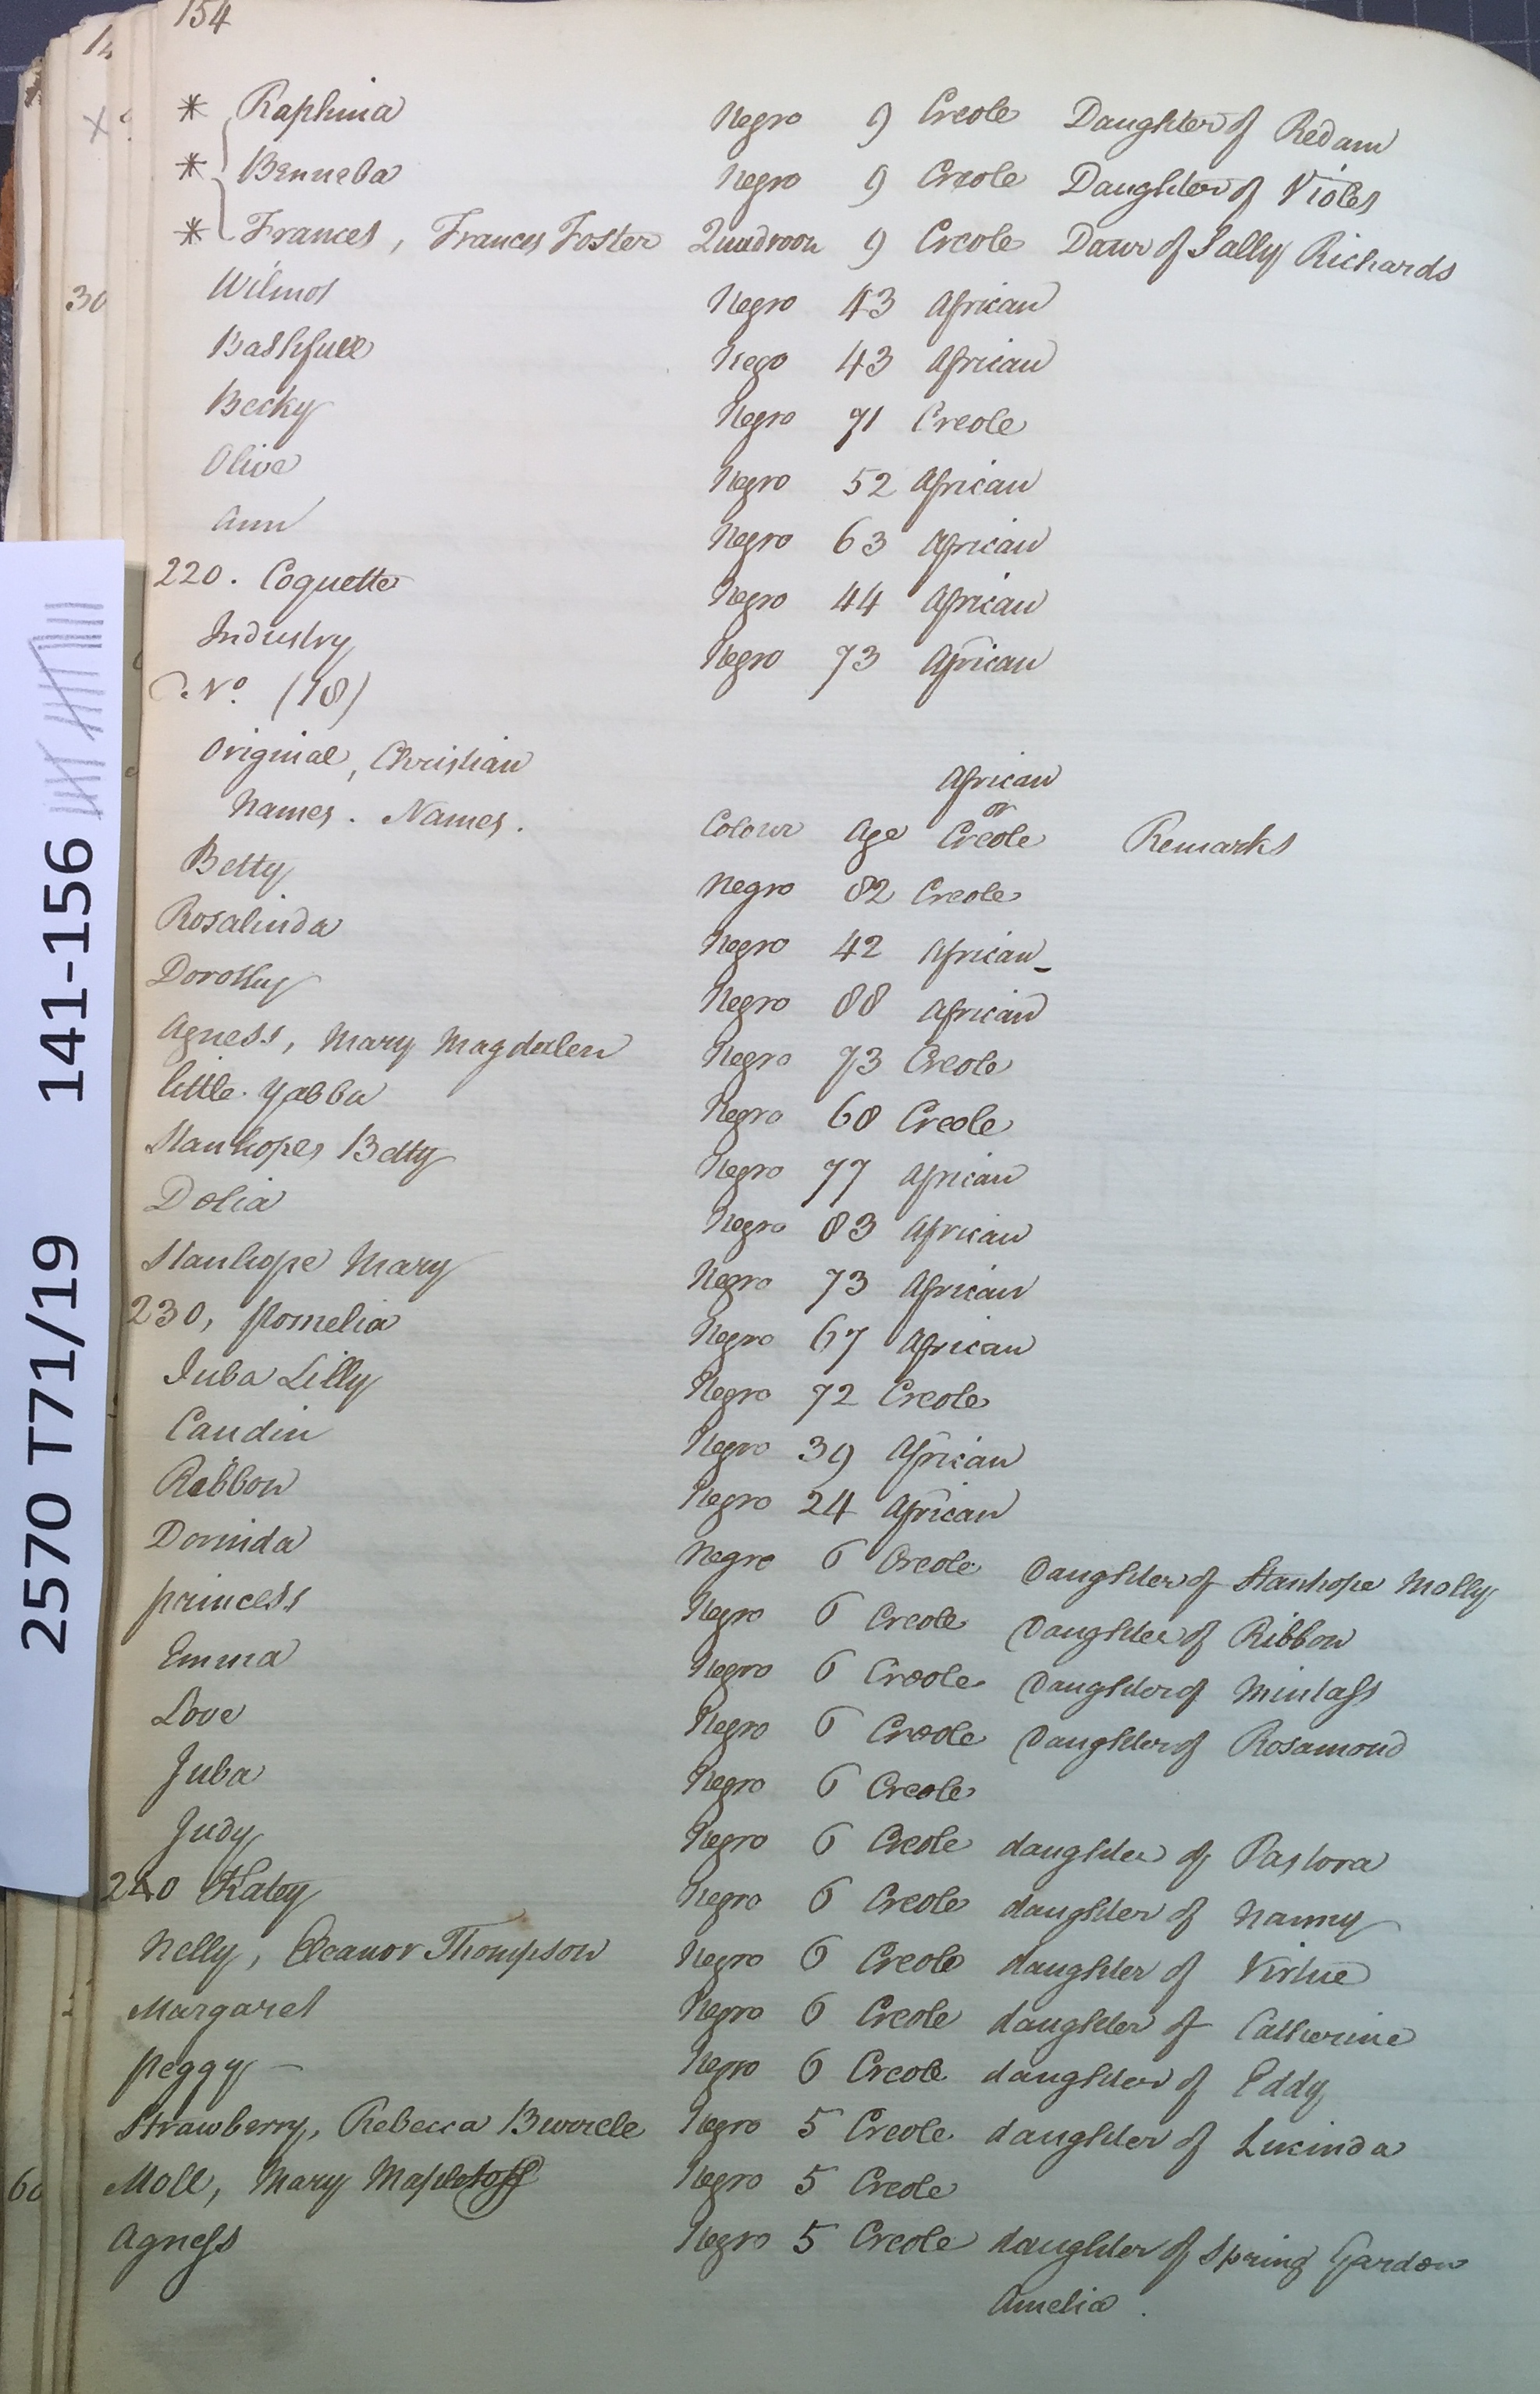 154
* Raphina Negro 9 Creole Daughter of Redam
* Benneba Negro 9 Creole Daughter of Violet
* Frances, Frances Foster Quadroon 9 Creole Daur of Sally Richards
Wilmot Negro 43 African
Bashfull Nego 43 African
Becky Negro 71 Creole
Olive Negro 52 African
Ann Negro 63 African
220. Coquette Negro 44 African
Industry Negro 73 African
No. (18)
Original, Christian African
Names. Names. Colour Age or Creole Remarks
Betty Negro 82 Creole
Rosalinda Negro 42 African
Dorothy Negro 88 African
Agness, Mary Magdalen Negro 73 Creole
little Yabba Negro 68 Creole
Stanhopes Betty Negro 77 African
Delia Negro 83 African
Stanhope Mary Negro 73 African
230, Pomelia Negro 67 African
Juba Lilly Negro 72 Creole
Candin Negro 39 African
Ribbon Negro 24 African
Dorinda Negro 6 Creole Daughter of Stanhope Molly
Princess Negro 6 Creole Daughter of Ribbon
Emma Negro 6 Creole Daughter of Mintass
Love Negro 6 Creole Daughter of Rosamond
Juba Negro 6 Creole
Judy Negro 6 Creole daughter of Pastora
240 Katey Negro 6 Creole daughter of Nanny
Nelly, Eleanor Thompson Negro 6 Creole daughter of Virtue
Margaret Negro 6 Creole daughter of Catherine
Peggy Negro 6 Creole daughter of Eddy
Strawberry, Rebecca Negro 5 Creole daughter of Lucinda
Moll, Mary Mapletoff Negro 5 Creole
Agness Negro 5 Creole daughter of Spring Garden
Amelia.
30
60
2570 T71/19 141-156